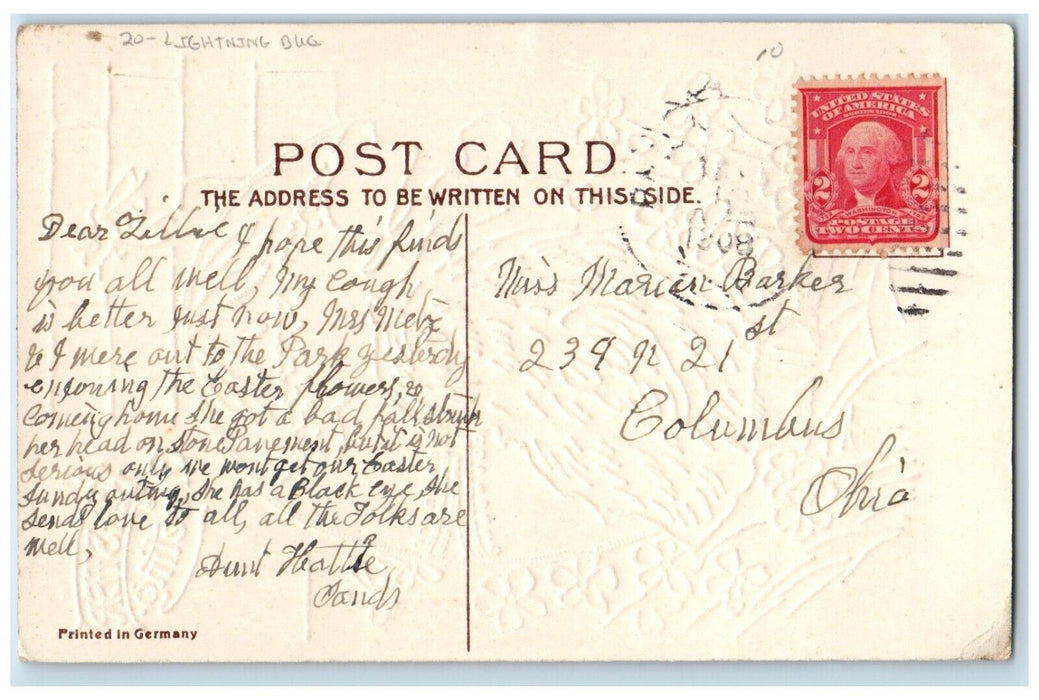 20-LIGHTNING BUG
10
UNITED STATES
OF AMERICA
SERIES 1902
2 2
WASHINGTON
POSTAGE
TWO CENTS
1908
POST CARD
THE ADDRESS TO BE WRITTEN ON THIS SIDE.
Dear Lillie I hope this finds
you all well, My Cough
is better just now, Mrs Metz
& I were out to the Park yesterdy
enjoying the Easter flowers, &
Coming home she got a bad fall struck
her head on stone Pavement, but is not
serious only we wont get our Easter
Sundy outing, she has a Black eye, she
sends love to all, all the Folks are
well,
Aunt Hattie
Miss Marian Barker
239 N 21 st
Columbus
Ohio
Printed in Germany